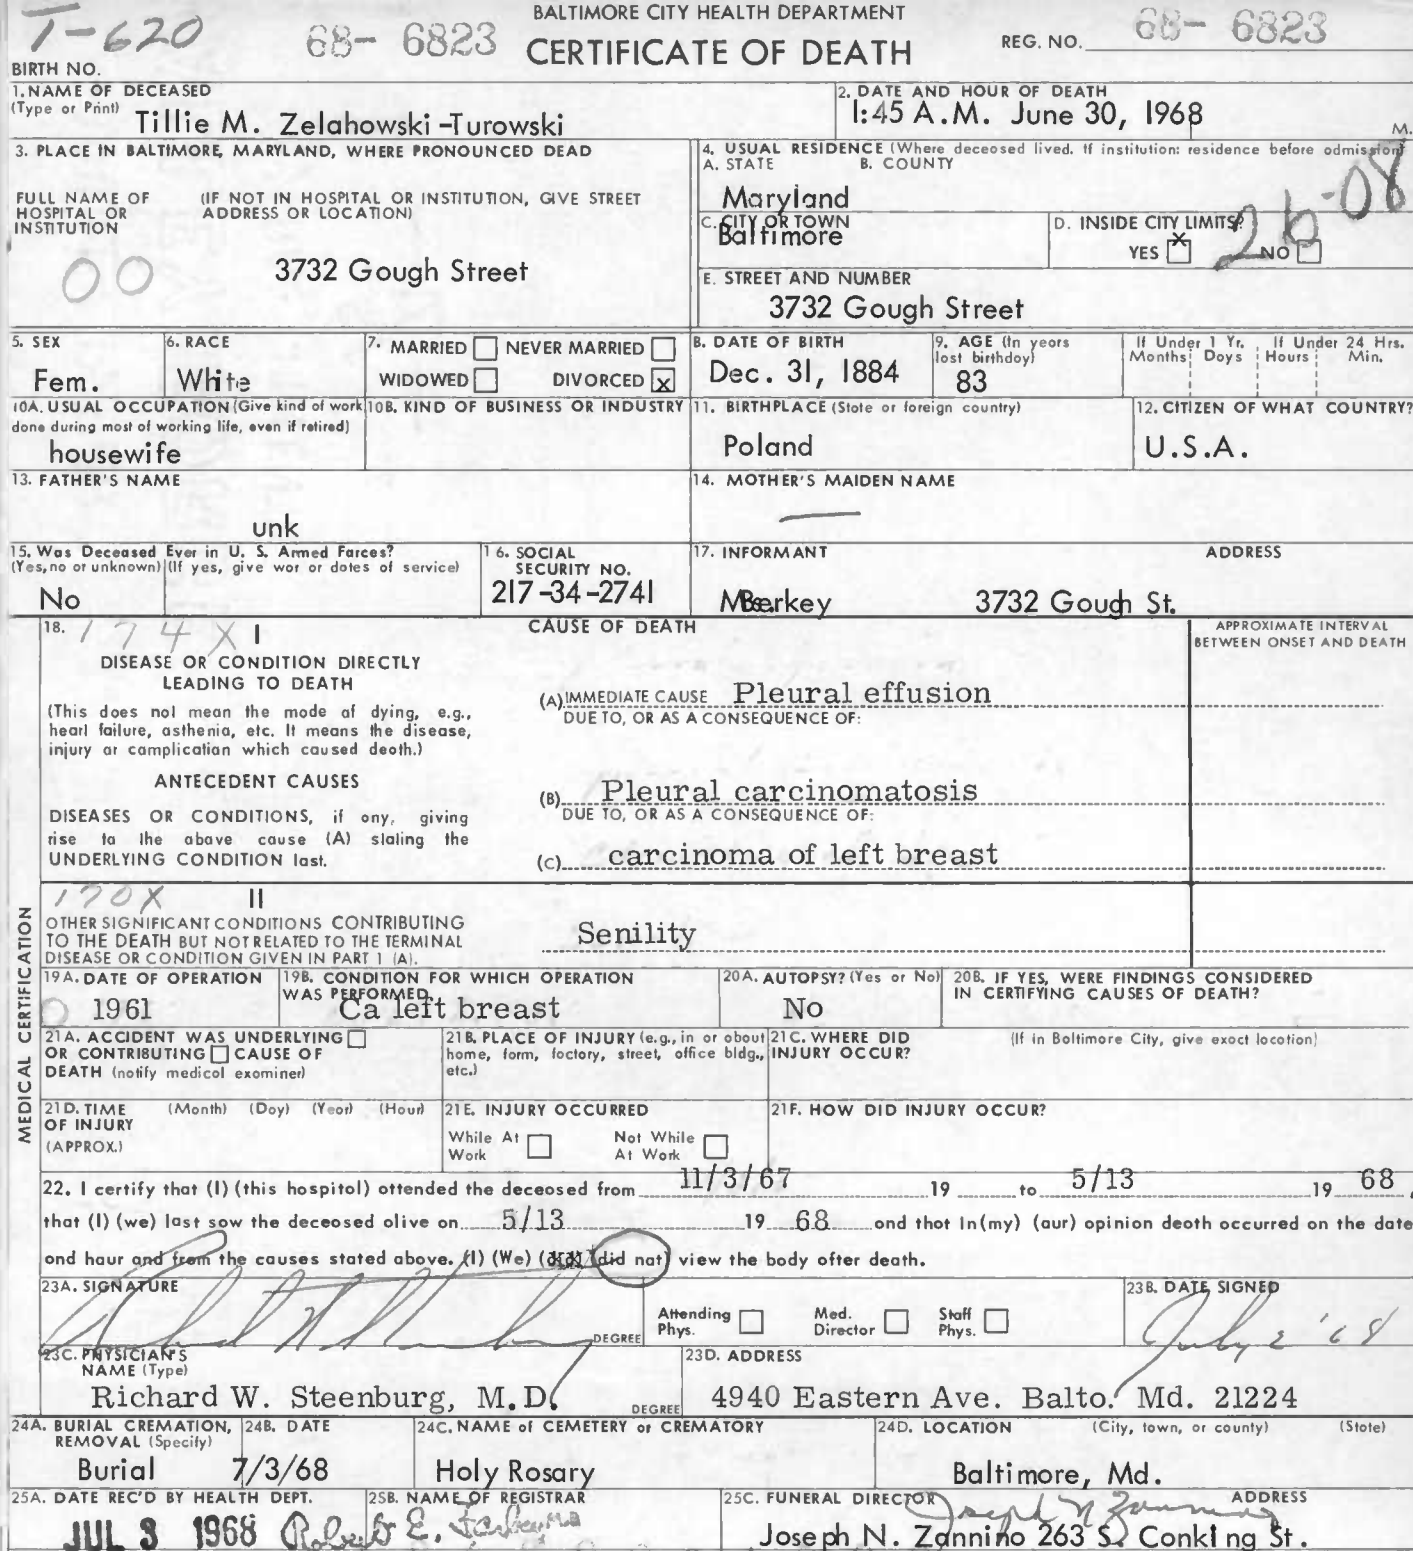 T-620
68- 6823
BALTIMORE CITY HEALTH DEPARTMENT
CERTIFICATE OF DEATH
REG. NO. 68- 6823
BIRTH NO.
1. NAME OF DECEASED
(Type or Print) Tillie M. Zelahowski-Turowski
2. DATE AND HOUR OF DEATH
1:45 A.M. June 30, 1968 M.
3. PLACE IN BALTIMORE, MARYLAND, WHERE PRONOUNCED DEAD
FULL NAME OF HOSPITAL OR INSTITUTION
(IF NOT IN HOSPITAL OR INSTITUTION, GIVE STREET ADDRESS OR LOCATION)
00
3732 Gough Street
4. USUAL RESIDENCE (Where deceased lived. If institution: residence before admission)
A. STATE B. COUNTY
Maryland
26-08
C. CITY OR TOWN
Baltimore
D. INSIDE CITY LIMITS?
YES X NO
E. STREET AND NUMBER
3732 Gough Street
5. SEX
Fem.
6. RACE
White
7. MARRIED NEVER MARRIED
WIDOWED DIVORCED X
8. DATE OF BIRTH
Dec. 31, 1884
9. AGE (In years lost birthdoy)
83
If Under 1 Yr. If Under 24 Hrs.
Months Doys Hours Min.
10A. USUAL OCCUPATION (Give kind of work
done during most of working life, even if retired)
housewife
10B. KIND OF BUSINESS OR INDUSTRY
11. BIRTHPLACE (Stote or foreign country)
Poland
12. CITIZEN OF WHAT COUNTRY?
U.S.A.
13. FATHER'S NAME
unk
14. MOTHER'S MAIDEN NAME
15. Was Deceased Ever in U. S. Armed Forces?
(Yes, no or unknown) (If yes, give wor or dotes of service)
No
16. SOCIAL SECURITY NO.
217-34-2741
17. INFORMANT ADDRESS
Berkey 3732 Gough St.
18. 174X I
CAUSE OF DEATH
APPROXIMATE INTERVAL
BETWEEN ONSET AND DEATH
DISEASE OR CONDITION DIRECTLY
LEADING TO DEATH
(This does not mean the mode of dying, e.g.,
heart failure, asthenia, etc. It means the disease,
injury or complication which caused deoth.)
(A) IMMEDIATE CAUSE Pleural effusion
DUE TO, OR AS A CONSEQUENCE OF:
ANTECEDENT CAUSES
DISEASES OR CONDITIONS, if ony, giving
rise to the obove cause (A) stating the
UNDERLYING CONDITION last.
(B) Pleural carcinomatosis
DUE TO, OR AS A CONSEQUENCE OF:
(C) carcinoma of left breast
MEDICAL CERTIFICATION
170X II
OTHER SIGNIFICANT CONDITIONS CONTRIBUTING
TO THE DEATH BUT NOT RELATED TO THE TERMINAL
DISEASE OR CONDITION GIVEN IN PART 1 (A).
Senility
19A. DATE OF OPERATION
1961
19B. CONDITION FOR WHICH OPERATION
WAS PERFORMED.
Ca left breast
20A. AUTOPSY? (Yes or No)
No
20B. IF YES, WERE FINDINGS CONSIDERED
IN CERTIFYING CAUSES OF DEATH?
21A. ACCIDENT WAS UNDERLYING
OR CONTRIBUTING CAUSE OF
DEATH (notify medicol exominer)
21B. PLACE OF INJURY (e.g., in or obout
home, form, foctory, street, office bldg.,
etc.)
21C. WHERE DID (If in Boltimore City, give exoct locotion)
INJURY OCCUR?
21D. TIME (Month) (Doy) (Yeor) (Hour)
OF INJURY
(APPROX.)
21E. INJURY OCCURRED
While At Work Not While At Work
21F. HOW DID INJURY OCCUR?
22. I certify that (I) (this hospitol) ottended the deceosed from 11/3/67 19 to 5/13 19 68,
that (I) (we) last sow the deceosed olive on 5/13 19 68 ond thot in(my) (our) opinion deoth occurred on the date
ond hour and from the causes stated above. (I) (We) (did not) view the body ofter death.
23A. SIGNATURE
DEGREE
Attending Phys. Med. Director Stoff Phys.
23B. DATE SIGNED
July 2 '68
23C. PHYSICIAN'S
NAME (Type)
Richard W. Steenburg, M.D. DEGREE
23D. ADDRESS
4940 Eastern Ave. Balto. Md. 21224
24A. BURIAL CREMATION,
REMOVAL (Specify)
Burial
24B. DATE
7/3/68
24C. NAME of CEMETERY or CREMATORY
Holy Rosary
24D. LOCATION (City, town, or county) (Stote)
Baltimore, Md.
25A. DATE REC'D BY HEALTH DEPT.
JUL 3 1968
25B. NAME OF REGISTRAR
Robert E.
25C. FUNERAL DIRECTOR ADDRESS
Joseph N Zannino
Joseph N. Zannino 263 S. Conkling St.